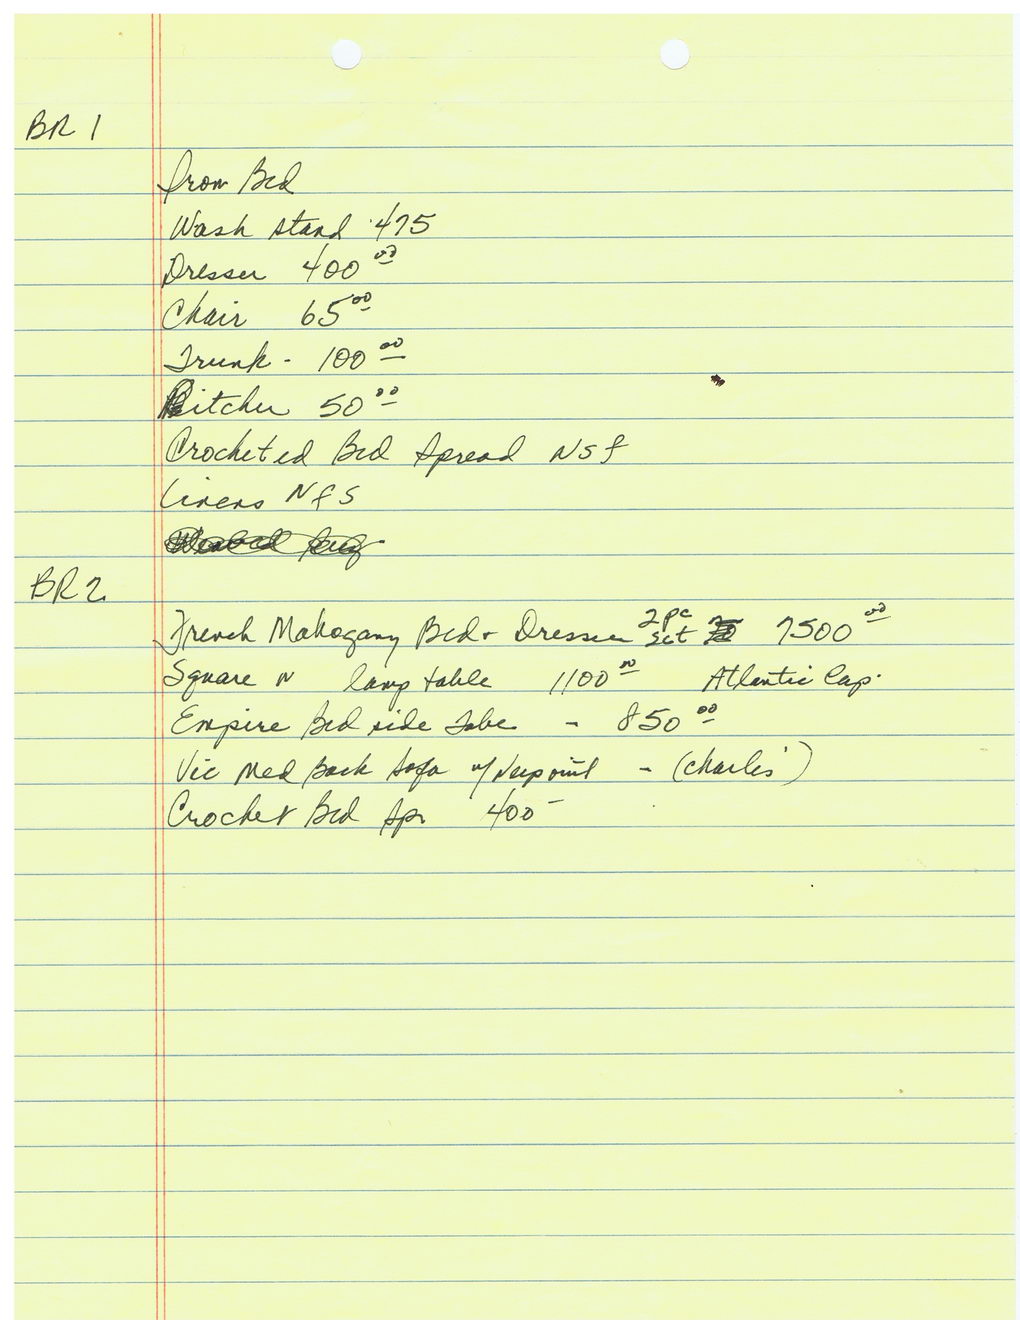 BR 1
Iron Bed
Wash stand 475
Dresser 400 00
Chair 65 00
Trunk - 100 00
Pitcher 50 00
Crocheted Bed Spread NSf
Linens NfS
BR 2
French Mahogany Bed + Dresser 2 pc set 7500 00
Square lamp table 1100 00 Atlantic Cap.
Empire Bed side - 850 00
Vic Med Back Sofa w/ - (Charles')
Crochet Bed Spr 400 -